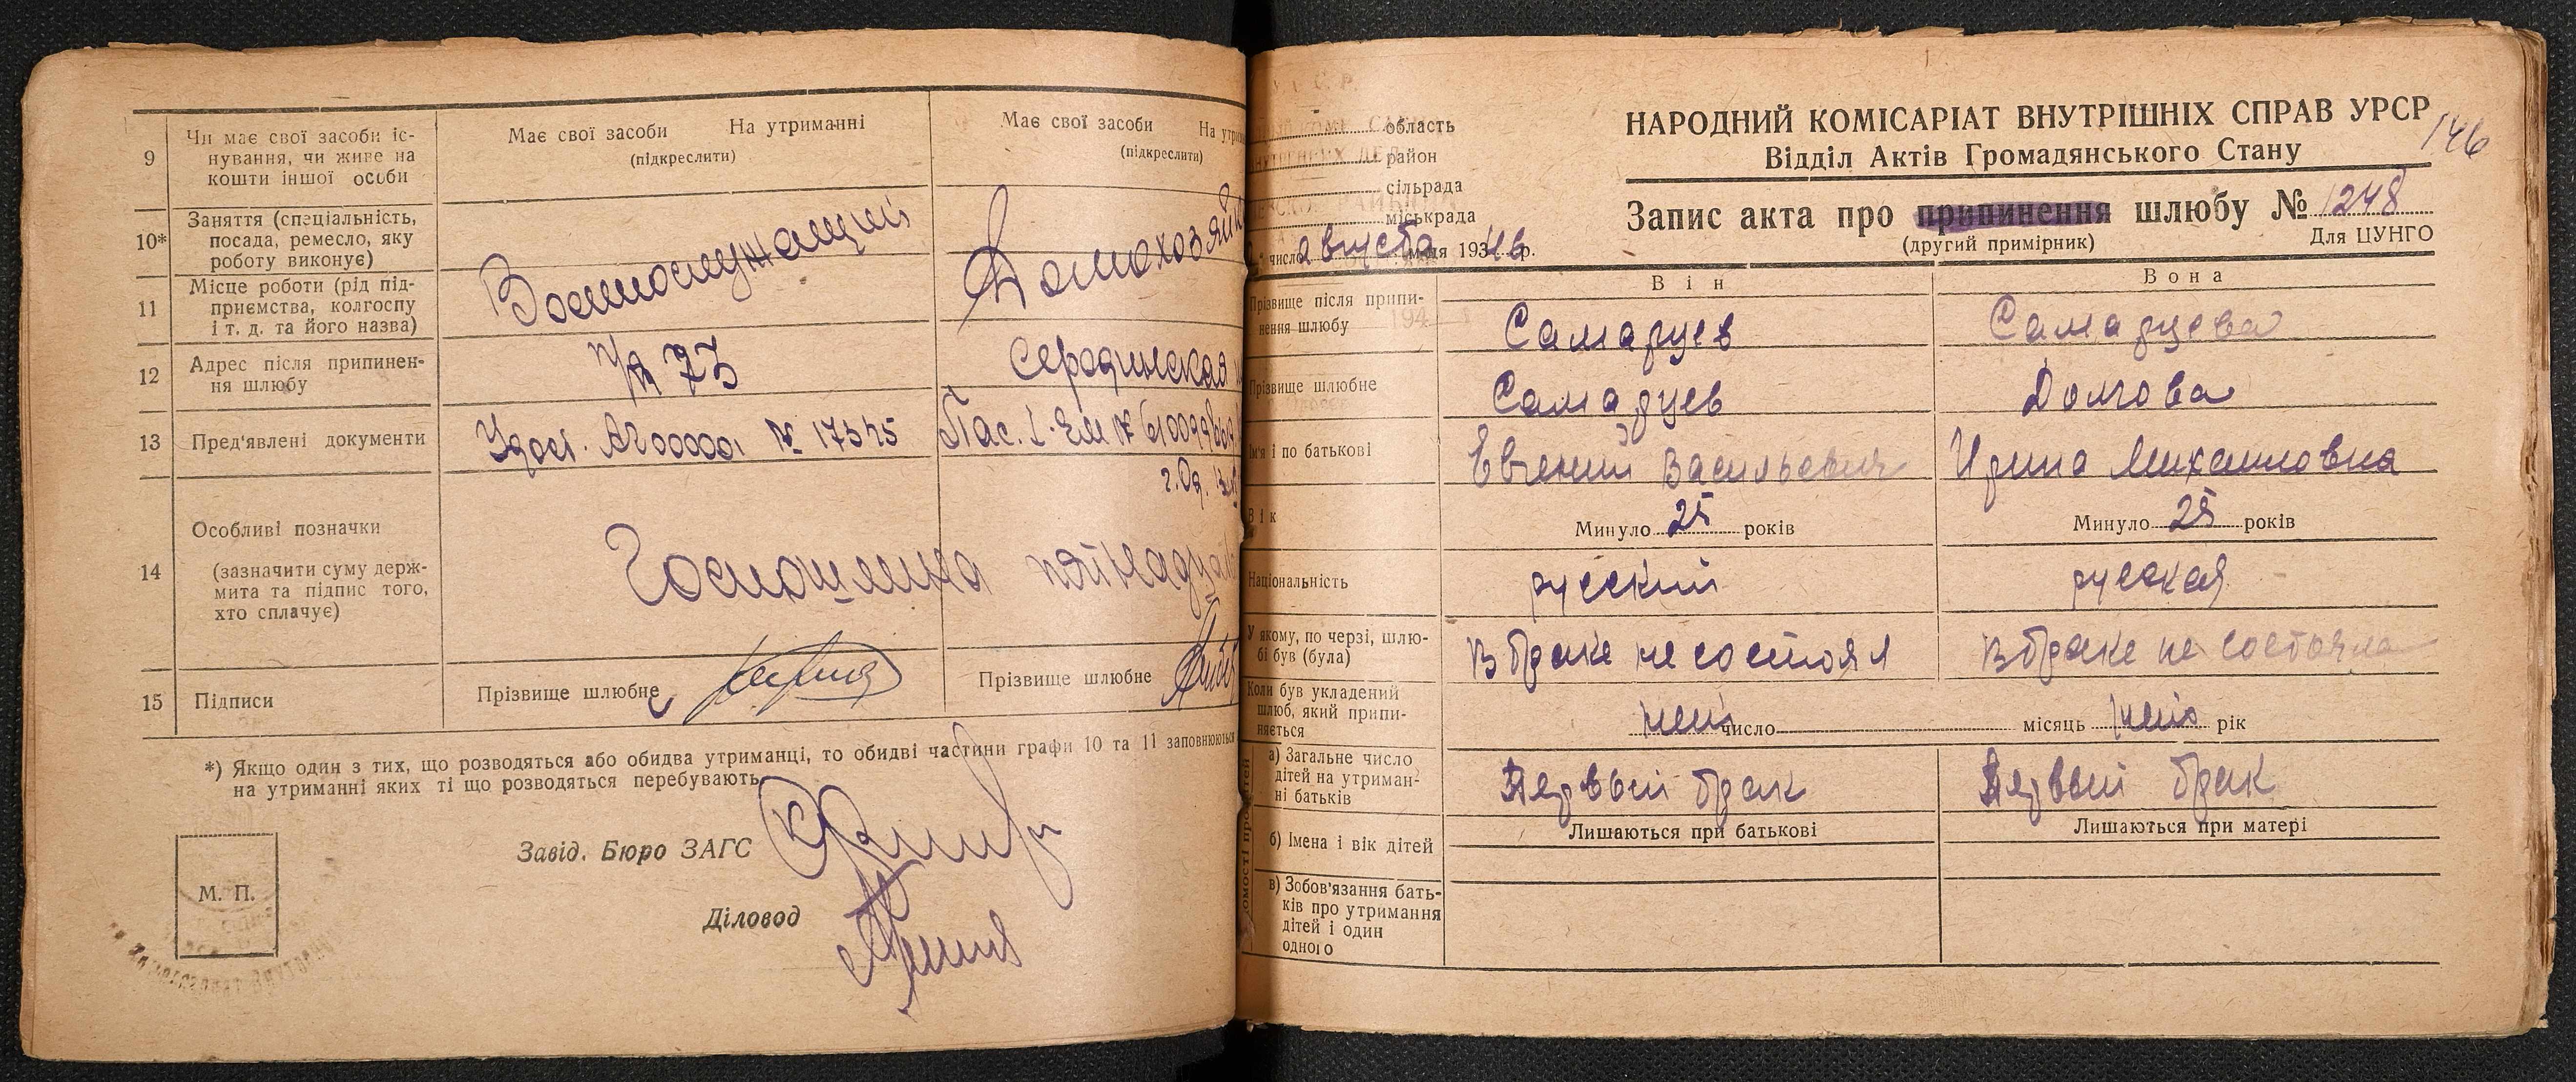 9
Чи має свої засоби іс-
нування, чи живе на
кошти іншої особи
Має свої засоби На утриманні
(підкреслити)
Має свої засоби На утри
(підкреслити)
10*
Заняття (спеціальність,
посада, ремесло, яку
роботу виконує)
Военнослужащий
Домохозяйк
11
Місце роботи (рід під-
приємства, колгоспу
і т. д. та його назва)
12
Адрес після припинен-
ня шлюбу
п/я 73
Середынская
13
Пред'явлені документи
Удост. № 17545
Пас.
14
Особливі позначки
(зазначити суму держ-
мита та підпис того,
хто сплачує)
Госпошлина пятнадцать
15
Підписи
Прізвище шлюбне
Прізвище шлюбне
*) Якщо один з тих, що розводяться або обидва утриманці, то обидві частини графи 10 та 11 заповнюються
на утриманні яких ті що розводяться перебувають.
М. П.
Завід. Бюро ЗАГС
Діловод
область
район
сільрада
міськрада
число августа м-ця 1946 р.
НАРОДНИЙ КОМІСАРІАТ ВНУТРІШНІХ СПРАВ УРСР
146
Відділ Актів Громадянського Стану
Запис акта про припинення шлюбу № 1248
(другий примірник)
Для ЦУНГО
Він
Вона
Прізвище після припи-
нення шлюбу
Самарцев
Самарцева
Прізвище шлюбне
Самарцев
Долгова
Ім'я і по батькові
Евгений Васильевич
Ирина Михайловна
Вік
Минуло 25 років
Минуло 25 років
Національність
русский
русская
У якому, по черзі, шлю-
бі був (була)
В браке не состоял
В браке не состояла
Коли був укладений
шлюб, який припи-
няється
число місяць рік
а) Загальне число
дітей на утриман-
ні батьків
Первый брак
Первый брак
б) Імена і вік дітей
Лишаються при батькові
Лишаються при матері
в) Зобов'язання бать-
ків про утримання
дітей і один
одного